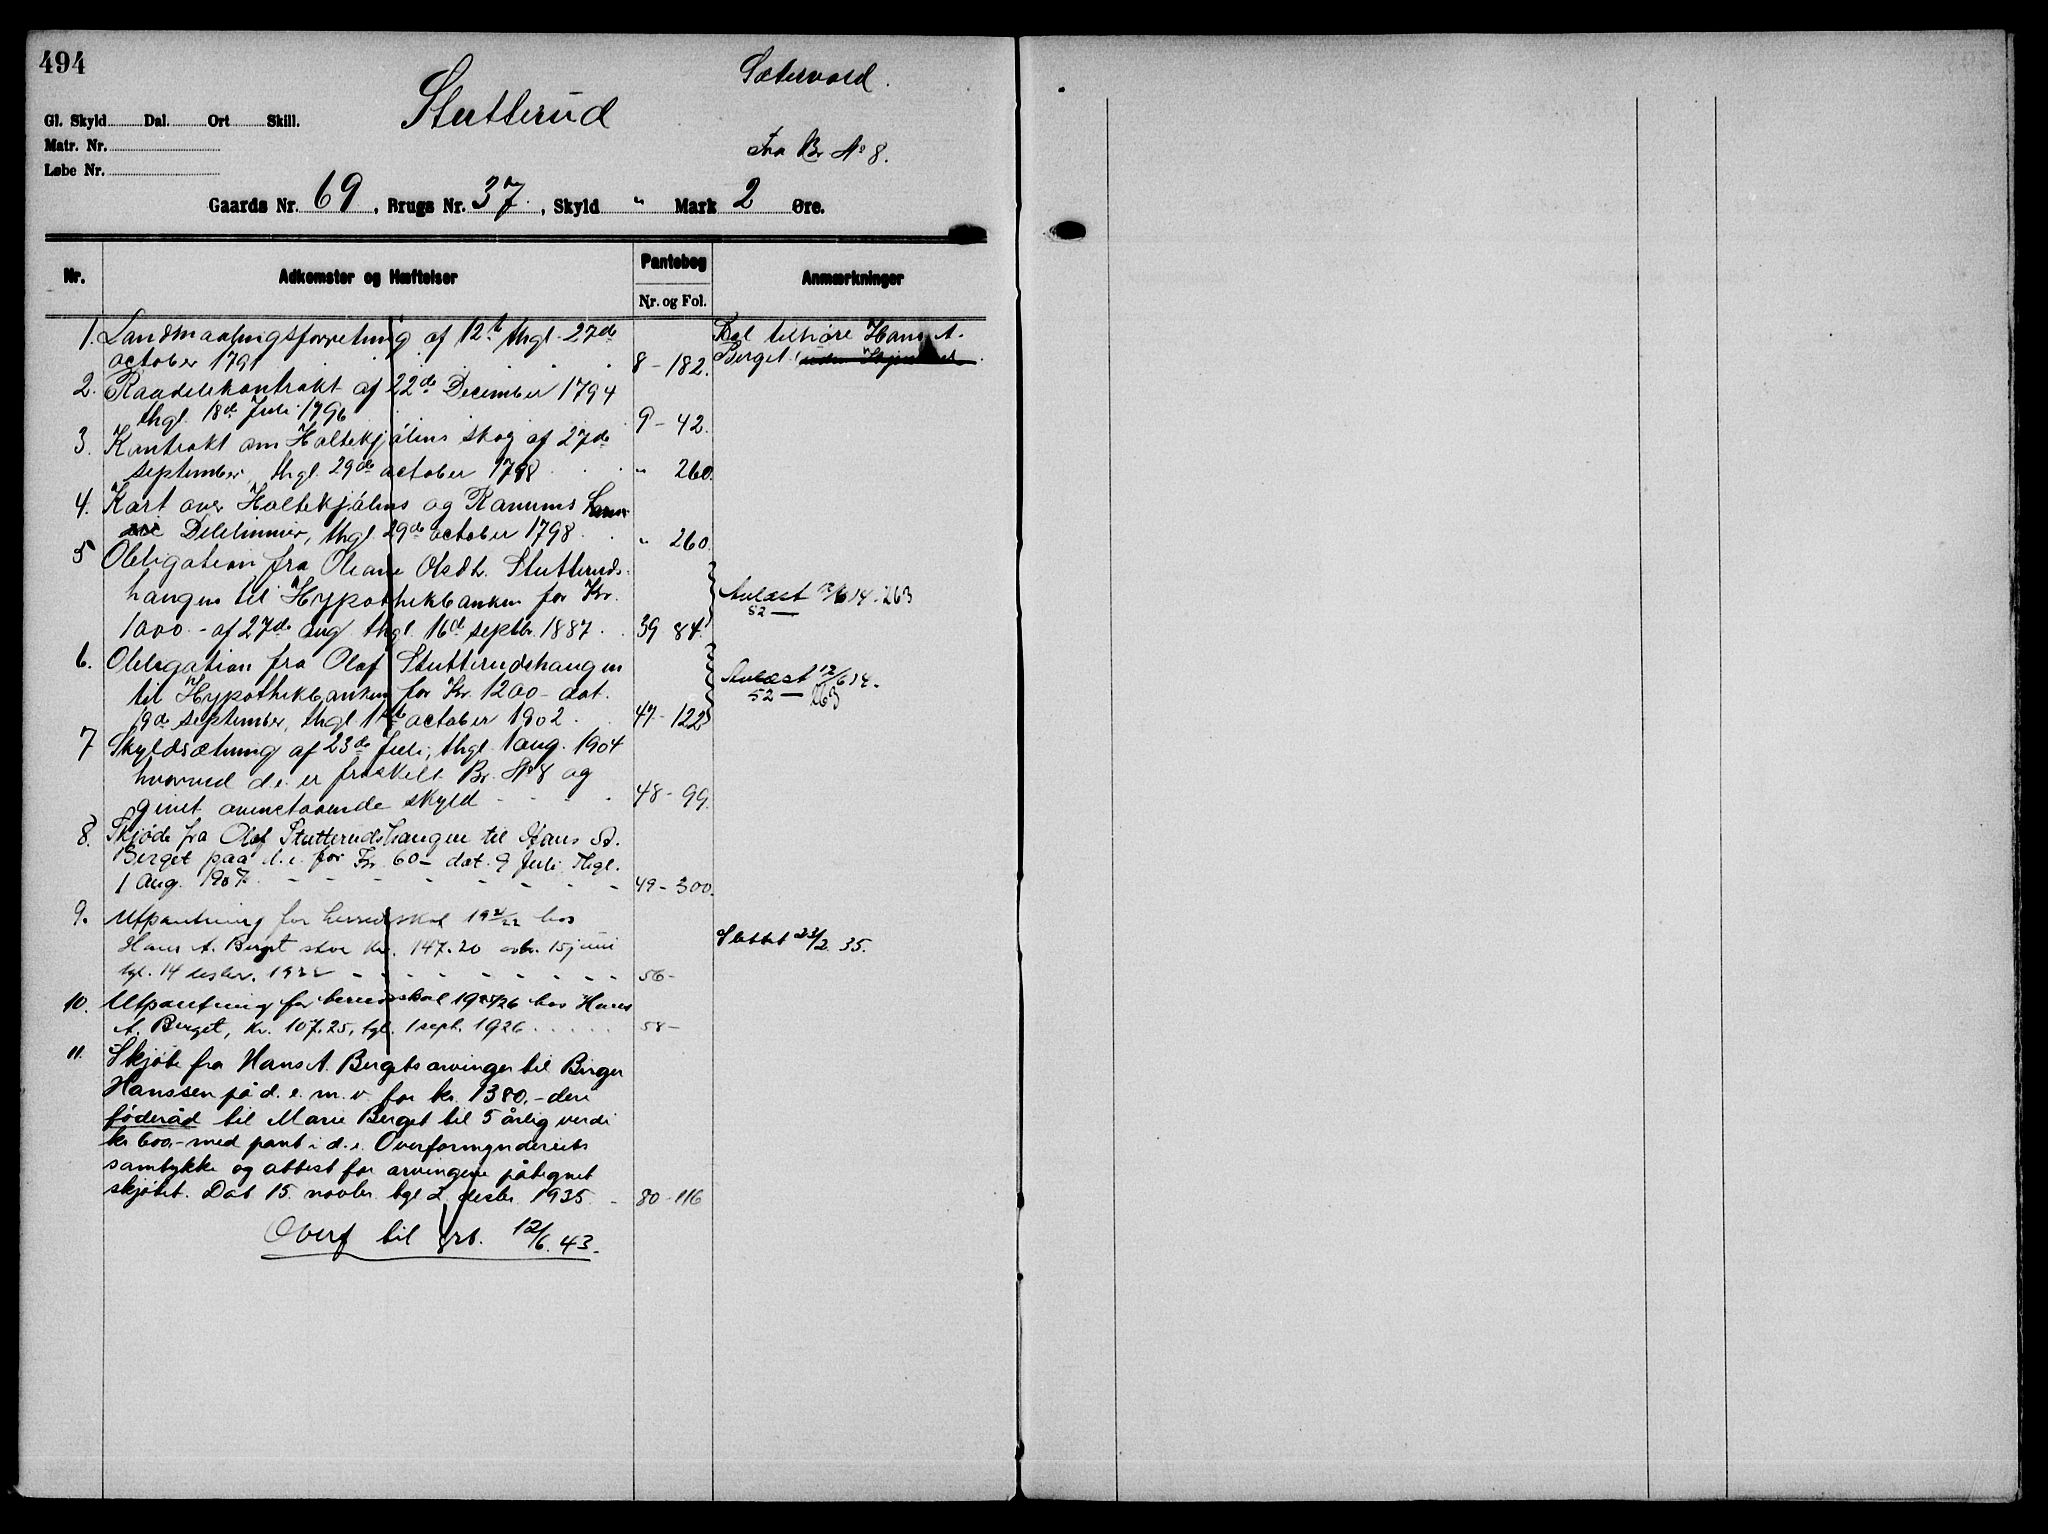 494
Stutterud
Sætervold.
Gl. Skyld Dal. Ort Skill.
Matr. Nr.
Løbe Nr.
Fra Br No 8.
Gaards Nr. 69, Brugs Nr. 37., Skyld " Mark 2 Øre.
Nr. Adkomster og Hæftelser Pantebog Anmærkninger
Nr. og Fol.
1. Landmaalingsforretning af 12te thgl. 27de
october 1791 8 - 182.
Del tilhøre Hans A.
Berget.
2. Raadelekontrakt af 22de December 1794
thgl. 18de Juli 1796 9 - 42.
3. Kontrakt om Holtekjølens skog af 27de
september, thgl. 29de october 1798 " 260.
4. Kart over Holtekjølens og Ranums
Delelinnier, thgl. 29de october 1798. " 260.
5 Obligation fra Oleane Olsdt. Stutteruds-
haugen til Hypothekbanken for Kr.
1000.- af 27de aug thgl. 16de septbr. 1887. 39 84.
Avlæst 12/6 14. 263
52 —
6. Obligation fra Olaf Stutterudshaugen
til Hypothekbanken for Kr. 1200- dat.
19de september, thgl 1ste october 1902. 47 - 122
Avlæst 12/6 14.
52 — 263
7 Skyldsætning af 23de Juli, thgl. 1 aug. 1904
hvorved d.e. er fraskilt Br. No 8 og
givet ovenstaaende skyld 48 - 99.
8. Skjøde fra Olaf Stutterudshaugen til Hans A.
Berget paa d.e. for Kr. 60- dat. 9 Juli, Thgl.
1 Aug. 1907. 49 - 300.
9. Utpantning for herredsskat 1921/22 hos
Hans A. Berget stor kr. 147.20 avh. 15 juni
tgl. 14 desbr. 1922 56 -
Slettet 23/2 35.
10. Utpantning for herredsskat 1925/26 hos Hans
A. Berget, kr. 107.25, tgl. 1 sept. 1926 58 -
11. Skjøte fra Hans A. Bergets arvinger til Birger
Hanssen på d. e. m. v. for kr. 1380,- deri
føderåd til Marie Berget til 5 årlig verdi
kr 600,- med pant i d. e. Overformynderiets
samtykke og attest for arvingene påtegnet
skjøtet. Dat 15. novbr. tgl 2. desbr. 1935. 80 - 116
Overf til grb. 12/6. 43.